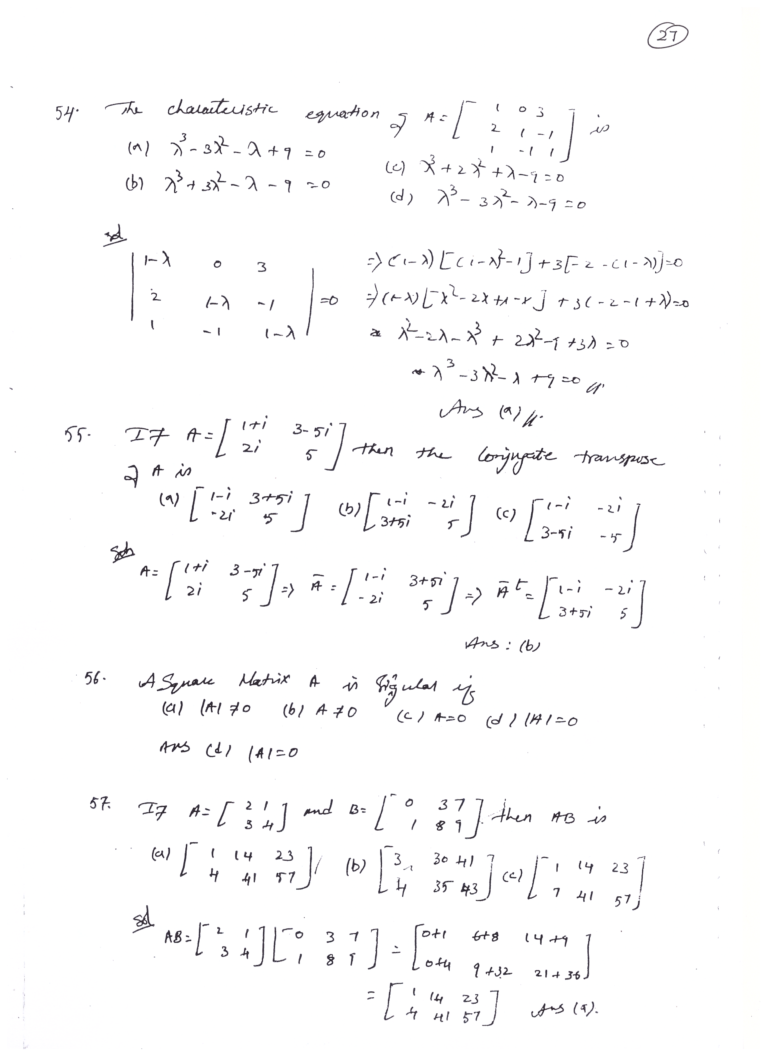 27
54. The characteristic equation of A = [ 1 0 3 ; 2 1 -1 ; 1 -1 1 ] is
(a) λ³ - 3λ² - λ + 9 = 0 (c) λ³ + 2λ² + λ - 9 = 0
(b) λ³ + 3λ² - λ - 9 = 0 (d) λ³ - 3λ² - λ - 9 = 0
sol
| 1-λ 0 3 ; 2 1-λ -1 ; 1 -1 1-λ | = 0
⇒ (1-λ) [(1-λ)² - 1] + 3[-2 - (1-λ)] = 0
⇒ (1-λ) [λ² - 2λ + 1 - 1] + 3(-2 - 1 + λ) = 0
λ² - 2λ - λ³ + 2λ² - 9 + 3λ = 0
λ³ - 3λ² - λ + 9 = 0
Ans (a)
55. If A = [ 1+i 3-5i ; 2i 5 ] then the Conjugate transpose
of A is
(a) [ 1-i 3+5i ; -2i 5 ] (b) [ 1-i -2i ; 3+5i 5 ] (c) [ 1-i -2i ; 3-5i -5 ]
Soln
A = [ 1+i 3-5i ; 2i 5 ] ⇒ Ā = [ 1-i 3+5i ; -2i 5 ] ⇒ Āᵗ = [ 1-i -2i ; 3+5i 5 ]
Ans : (b)
56. A Square Matrix A is Singular if
(a) |A| ≠ 0 (b) A ≠ 0 (c) A = 0 (d) |A| = 0
Ans (d) |A| = 0
57. If A = [ 2 1 ; 3 4 ] and B = [ 0 3 7 ; 1 8 9 ] then AB is
(a) [ 1 14 23 ; 4 41 57 ] (b) [ 3 30 41 ; 4 35 43 ] (c) [ 1 14 23 ; 7 41 57 ]
sol
AB = [ 2 1 ; 3 4 ] [ 0 3 7 ; 1 8 9 ] = [ 0+1 6+8 14+9 ; 0+4 9+32 21+36 ]
= [ 1 14 23 ; 4 41 57 ] Ans (a).